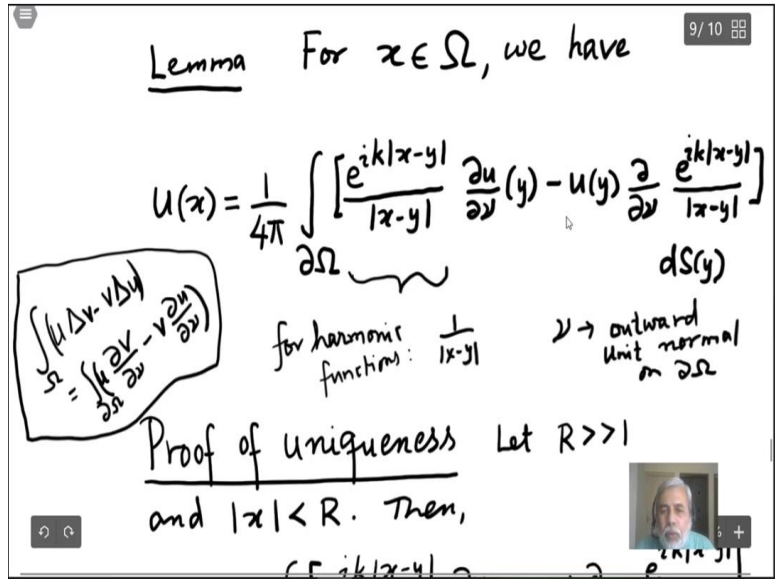 9/10
Lemma For x ∈ Ω, we have
u(x) = 1/4π ∫_∂Ω [ e^{ik|x-y|}/|x-y| ∂u/∂ν (y) - u(y) ∂/∂ν e^{ik|x-y|}/|x-y| ]
dS(y)
∫_Ω (u Δv - v Δu)
= ∫_∂Ω (u ∂v/∂ν - v ∂u/∂ν)
for harmonic functions: 1/|x-y|
ν → outward
unit normal
on ∂Ω
Proof of uniqueness Let R>>1
and |x| < R. Then,